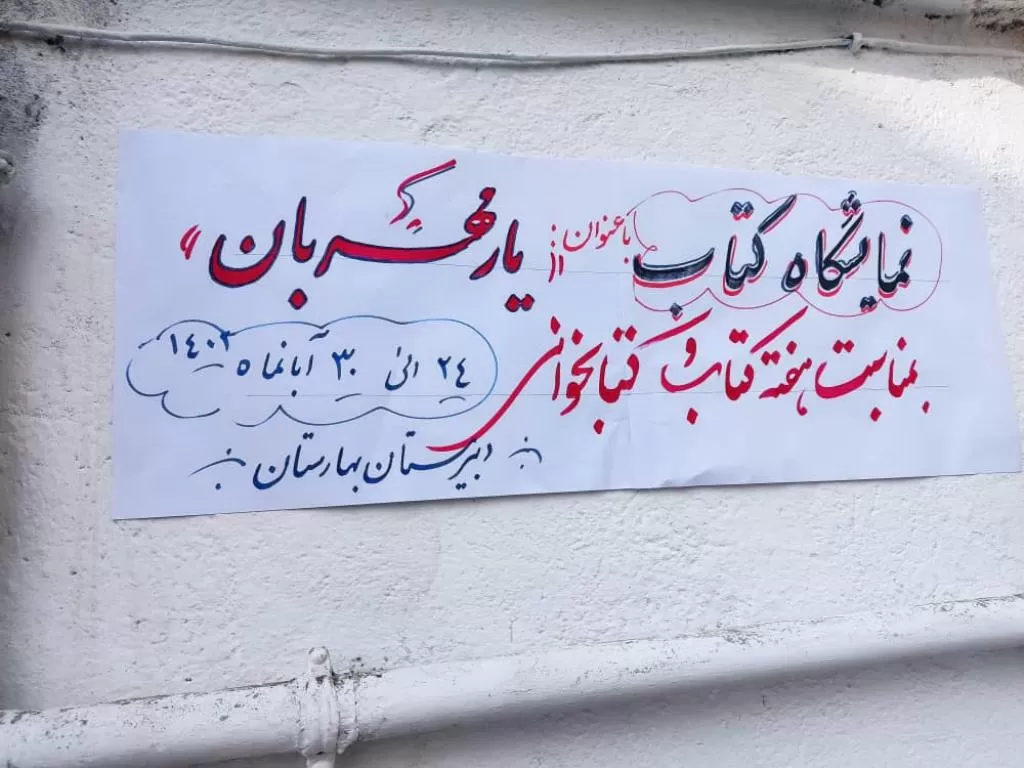 نمایشگاه کتاب با عنوان: «یار مهربان»
بمناسبت هفته کتاب و کتابخوانی
۲۴ الی ۳۰ آبانماه ۱۴۰۳
دبیرستان بهارستان